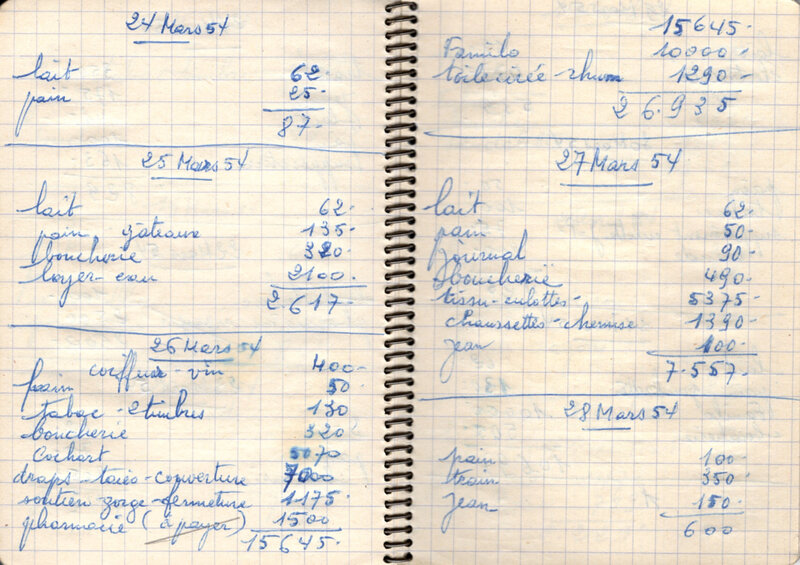 24 Mars 54
lait 62.
pain 25.
87.
25 Mars 54
lait 62.
pain gâteaux 135.
boucherie 320.
loyer-eau 2100.
2.617.
26 Mars 54
coiffeur - vin 400.
pain 50
tabac - 2 timbres 130
boucherie 320
Cochart 5070
draps - taies - couverture 7000
soutien gorge - fermeture 1175.
pharmacie (à payer) 1500
15645.
15645.
Familo 10000.
toile cirée rhum 1290.
26.935
27 Mars 54
lait 62.
pain 50.
journal 90.
boucherie 490.
tissu - culottes - 5375.
chaussettes - chemise 1390.
jean 100.
7.557.
28 Mars 54
pain 100.
train 350
jean 150.
600